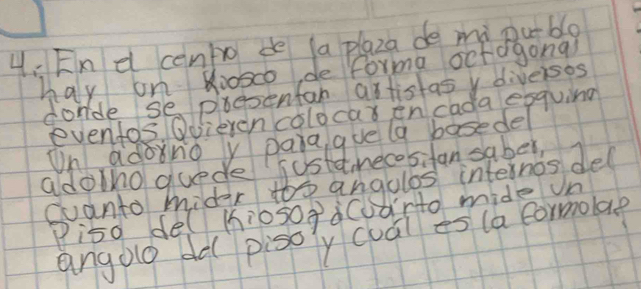 4. En el centro de la plaza de mi pueblo
hay un Kiosco de forma octogonal
donde se presentan artistas y diversos
eventos. Quieren colocar en cada esquina
Un adorno y para que la base del
adorno quede justa, necesitan saber,
cuanto miden los angulos internos del
Piso del Kiosco ¿Cuánto mide un
angulo del piso y cuál es la formola?